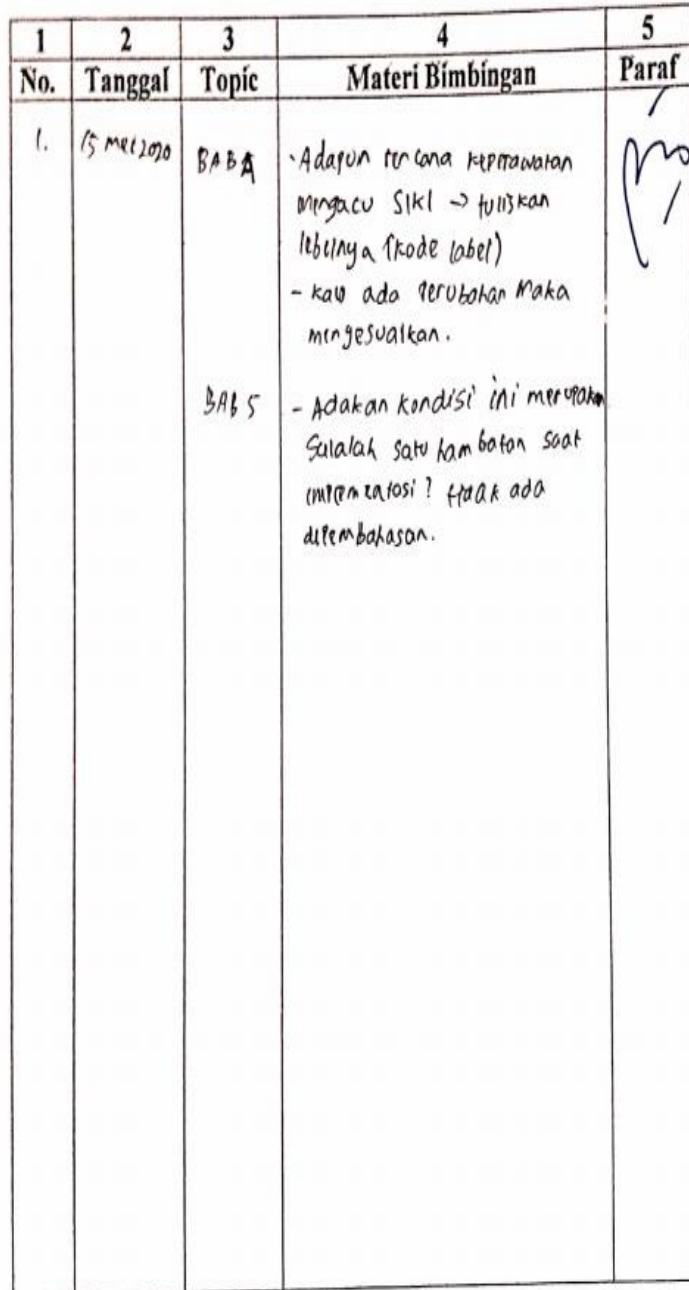 1 2 3 4 5
No. Tanggal Topic Materi Bimbingan Paraf
1. 15 mei 2020 BAB 4 - Adapun rencana keperawatan
mengacu SIKI → tuliskan
lebelnya (kode label)
- kalo ada perubahan maka
mengesuaikan.
BAB 5 - Adakan kondisi ini merupakan
Salalah satu hambatan saat
implementasi? tidak ada
dipembahasan.